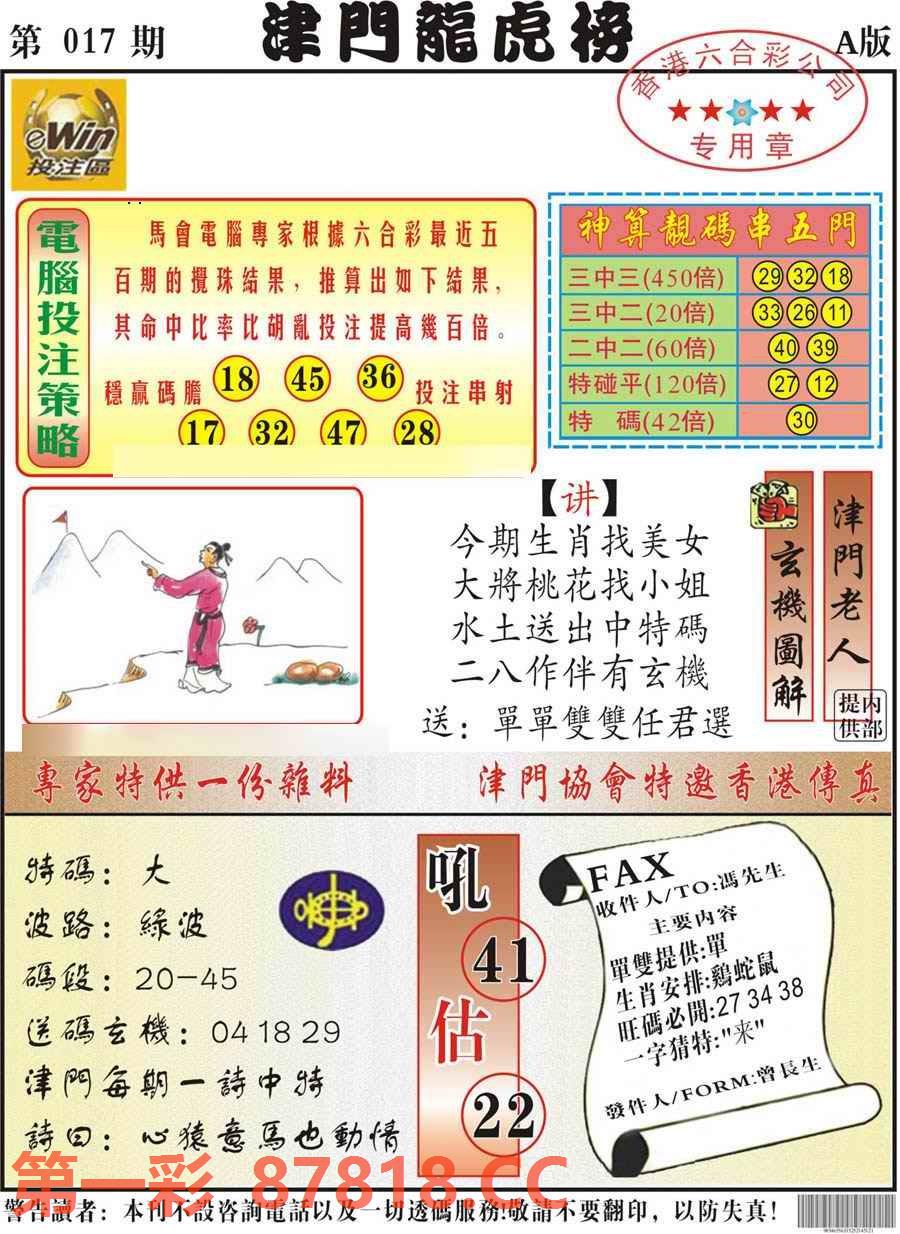 第 017 期
津門龍虎榜
A版
香港六合彩公司
专用章
eWin
投注區
電腦投注策略
馬會電腦專家根據六合彩最近五
百期的攪珠結果，推算出如下結果，
其命中比率比胡亂投注提高幾百倍。
穩贏碼膽 18 45 36 投注串射
17 32 47 28
神算靚碼串五門
三中三(450倍) 29 32 18
三中二(20倍) 33 26 11
二中二(60倍) 40 39
特碰平(120倍) 27 12
特 碼(42倍) 30
【讲】
今期生肖找美女
大將桃花找小姐
水土送出中特碼
二八作伴有玄機
送：單單雙雙任君選
玄機圖解
津門老人
内部提供
專家特供一份雜料
津門協會特邀香港傳真
特碼：大
波路：綠波
碼段：20-45
送碼玄機：04 18 29
津門每期一詩中特
詩曰：心猿意馬也動情
吼
41
估
22
FAX
收件人/TO:馮先生
主要内容
單雙提供:單
生肖安排:鷄蛇鼠
旺碼必開:27 34 38
一字猜特:"来"
發件人/FORM:曾長生
第一彩 87818.CC
警告讀者：本刊不設咨詢電話以及一切透碼服務!敬請不要翻印，以防失真!